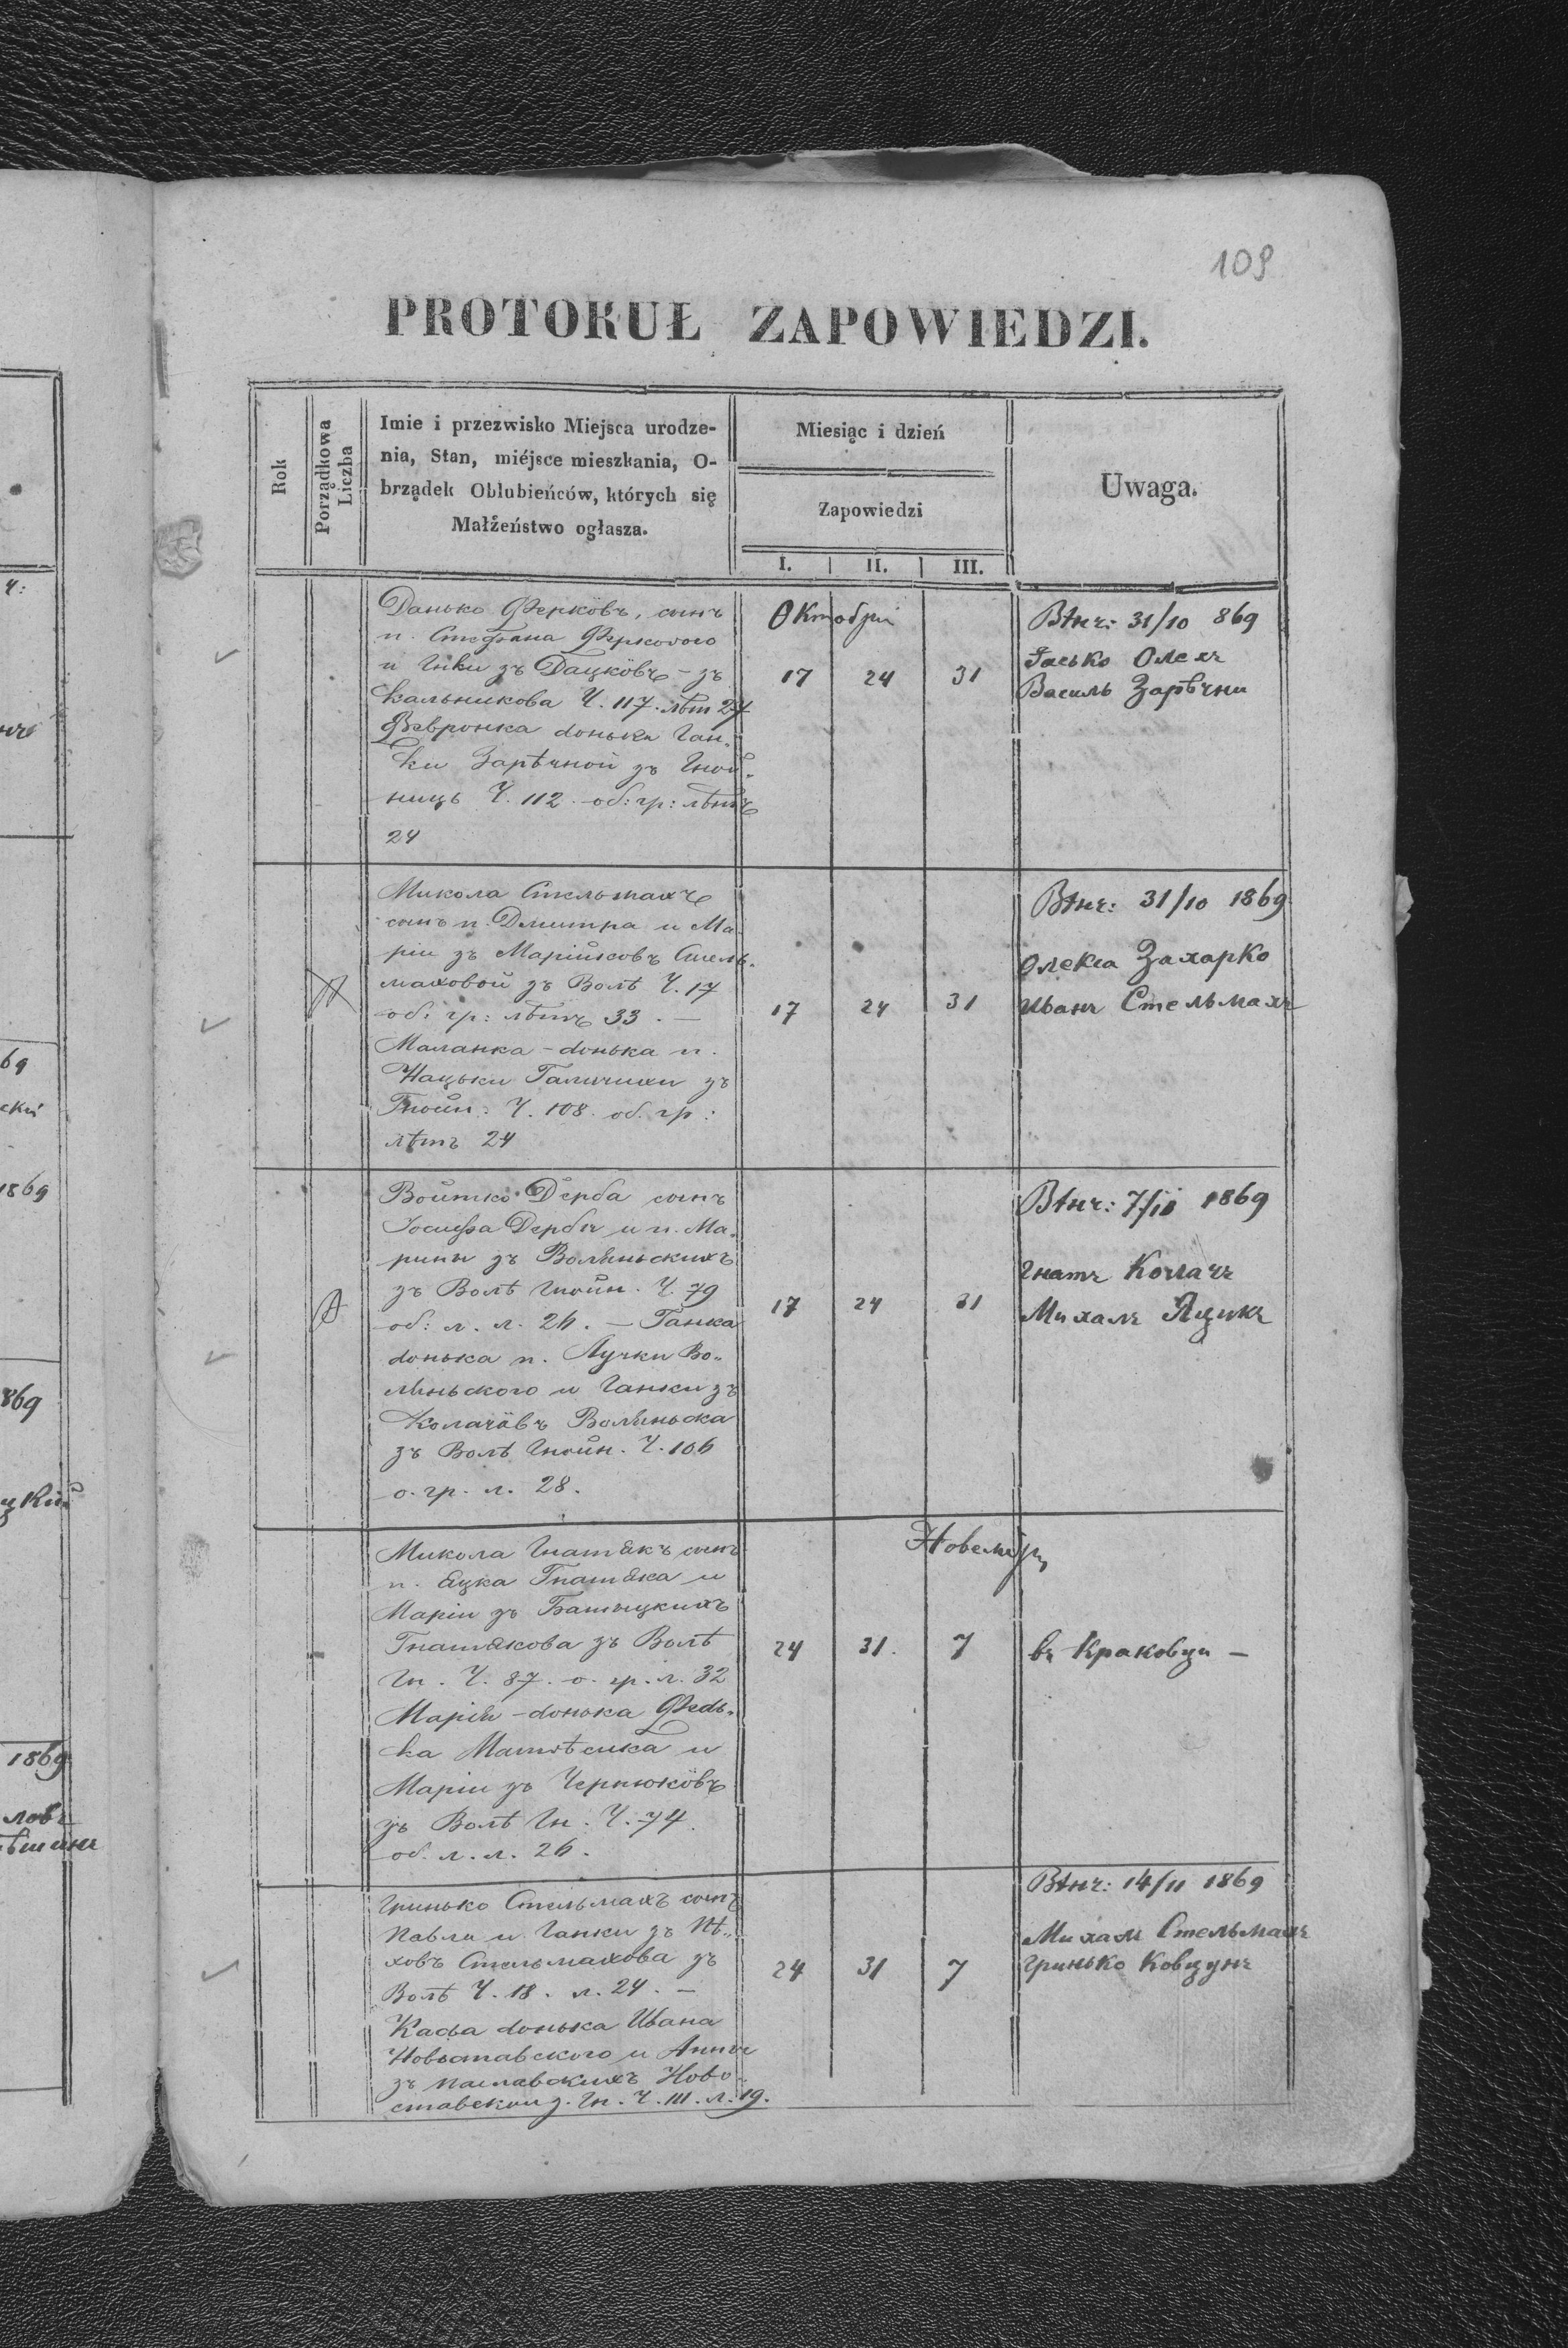 109
PROTOKUŁ ZAPOWIEDZI.
Rok
Porządkowa
Liczba
Imie i przezwisko Miejsca urodze-
nia, Stan, miéjsce mieszkania, O-
brządek Oblubieńców, których się
Małżeństwo ogłasza.
Miesiąc i dzień
Zapowiedzi
I. II. III.
Uwaga.
Данько Ферковъ, сынъ
п. Стефана Феркового
и Инки зъ Дацковъ – зъ
Кальникова Ч. 117. лѣт 24
Февронка донька Ган-
ки Зарѣчной зъ Гной-
ниць Ч. 112. об: гр: лѣтъ
24
Октобрій
17 24 31
Вѣнч: 31/10 869
Василь Зарѣчни
Микола Стельмахъ
сынъ п. Дмитра и Ма
ріи зъ Стель-
маховой зъ Волѣ Ч. 17
об: гр: лѣтъ 33. –
Маланка – донька п.
Нацьки Галичихи зъ
Гнойн: Ч. 108. об. гр:
лѣтъ 24
17 24 31
Вѣнч: 31/10 1869
Олекса Захарко
Иванъ Стельмахъ
Войтко Дерба сынъ
Іосифа Дербы и п. Ма-
рины зъ Волянськихъ
зъ Волѣ Гнойн. Ч. 79
об: л. л. 26. – Ганка
донька п. Лучки Во-
линьского и Ганки зъ
Колачôвъ Волиньска
зъ Волѣ Гнойн. Ч. 106
о. гр. л. 28.
17 24 31
Вѣнч: 1869
Игнатъ Колачъ
Михалъ Яцикъ
Микола Гнатякъ сынъ
п. Яцка Гнатяка и
Маріи зъ
Гнатякова зъ Волѣ
Гн. Ч. 87. о. гр. л. 32
Марія – донька Федь-
ка и
Маріи зъ Чернюкôвъ
зъ Волѣ Гн. Ч. 74.
об. л. л. 26.
Новембрій
24 31. 7
въ Краковци –
Гринько Стельмахъ сынъ
Павла и Ганки зъ Пѣ-
ховъ Стельмахова зъ
Волѣ Ч. 18. л. 24. –
Кася донька Ивана
Новоставского и Анны
зъ Паславскихъ Ново-
ставскои з. Гн. Ч. 111. л. 19.
24 31 7
Вѣнч: 14/11 1869
Михалъ Стельмахъ
Гринько Ковцунъ
1869
1869
1869